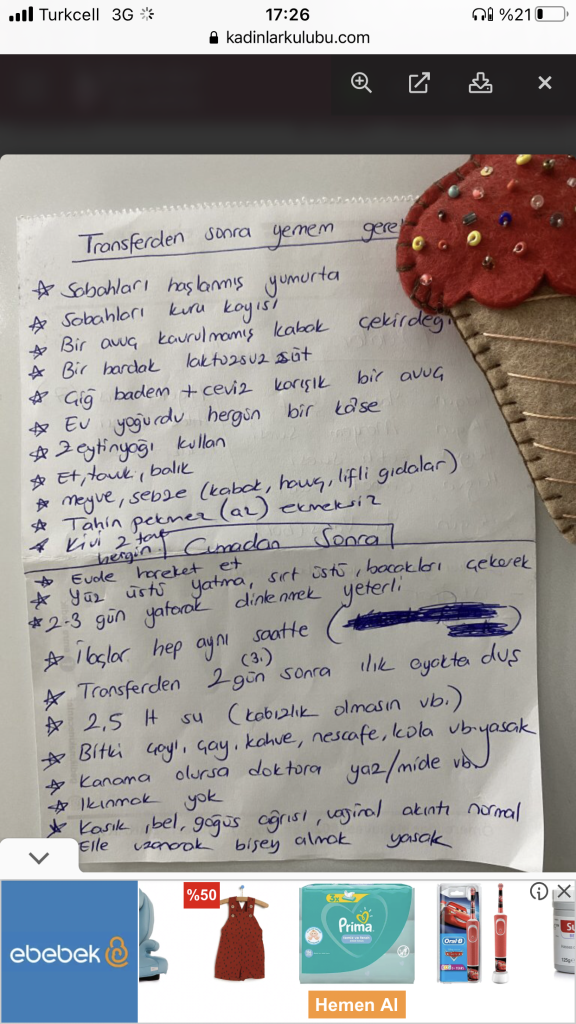 Turkcell 3G 17:26 %21
kadinlarkulubu.com
Transferden sonra yemem gere
Sabahları haşlanmış yumurta
Sabahları kuru kayısı
Bir avuç kavrulmamış kabak çekirdeği
Bir bardak laktozsuz süt
Çiğ badem + ceviz karışık bir avuç
Ev yoğurdu hergün bir kase
Zeytinyağı kullan
Et, tavuk, balık
meyve, sebze (kabak, havuç, lifli gıdalar)
Tahin pekmez (az) ekmeksiz
Kivi 2 tane
hergün
Cumadan Sonra
Evde hareket et
Yüz üstü yatma, sırt üstü, bacakları çekerek
2-3 gün yatarak dinlenmek yeterli
İlaçlar hep aynı saatte (
)
(3.)
Transferden 2 gün sonra ılık ayakta duş
2,5 lt su (kabızlık olmasın vb.)
Bitki çayı, çay, kahve, nescafe, kola vb. yasak
Kanama olursa doktora yaz/mide vb.
Ikınmak yok
Kasık, bel, göğüs ağrısı, vajinal akıntı normal
Elle uzanarak bişey almak yasak
%50
ebebek
Prima
Oral B
Hemen Al